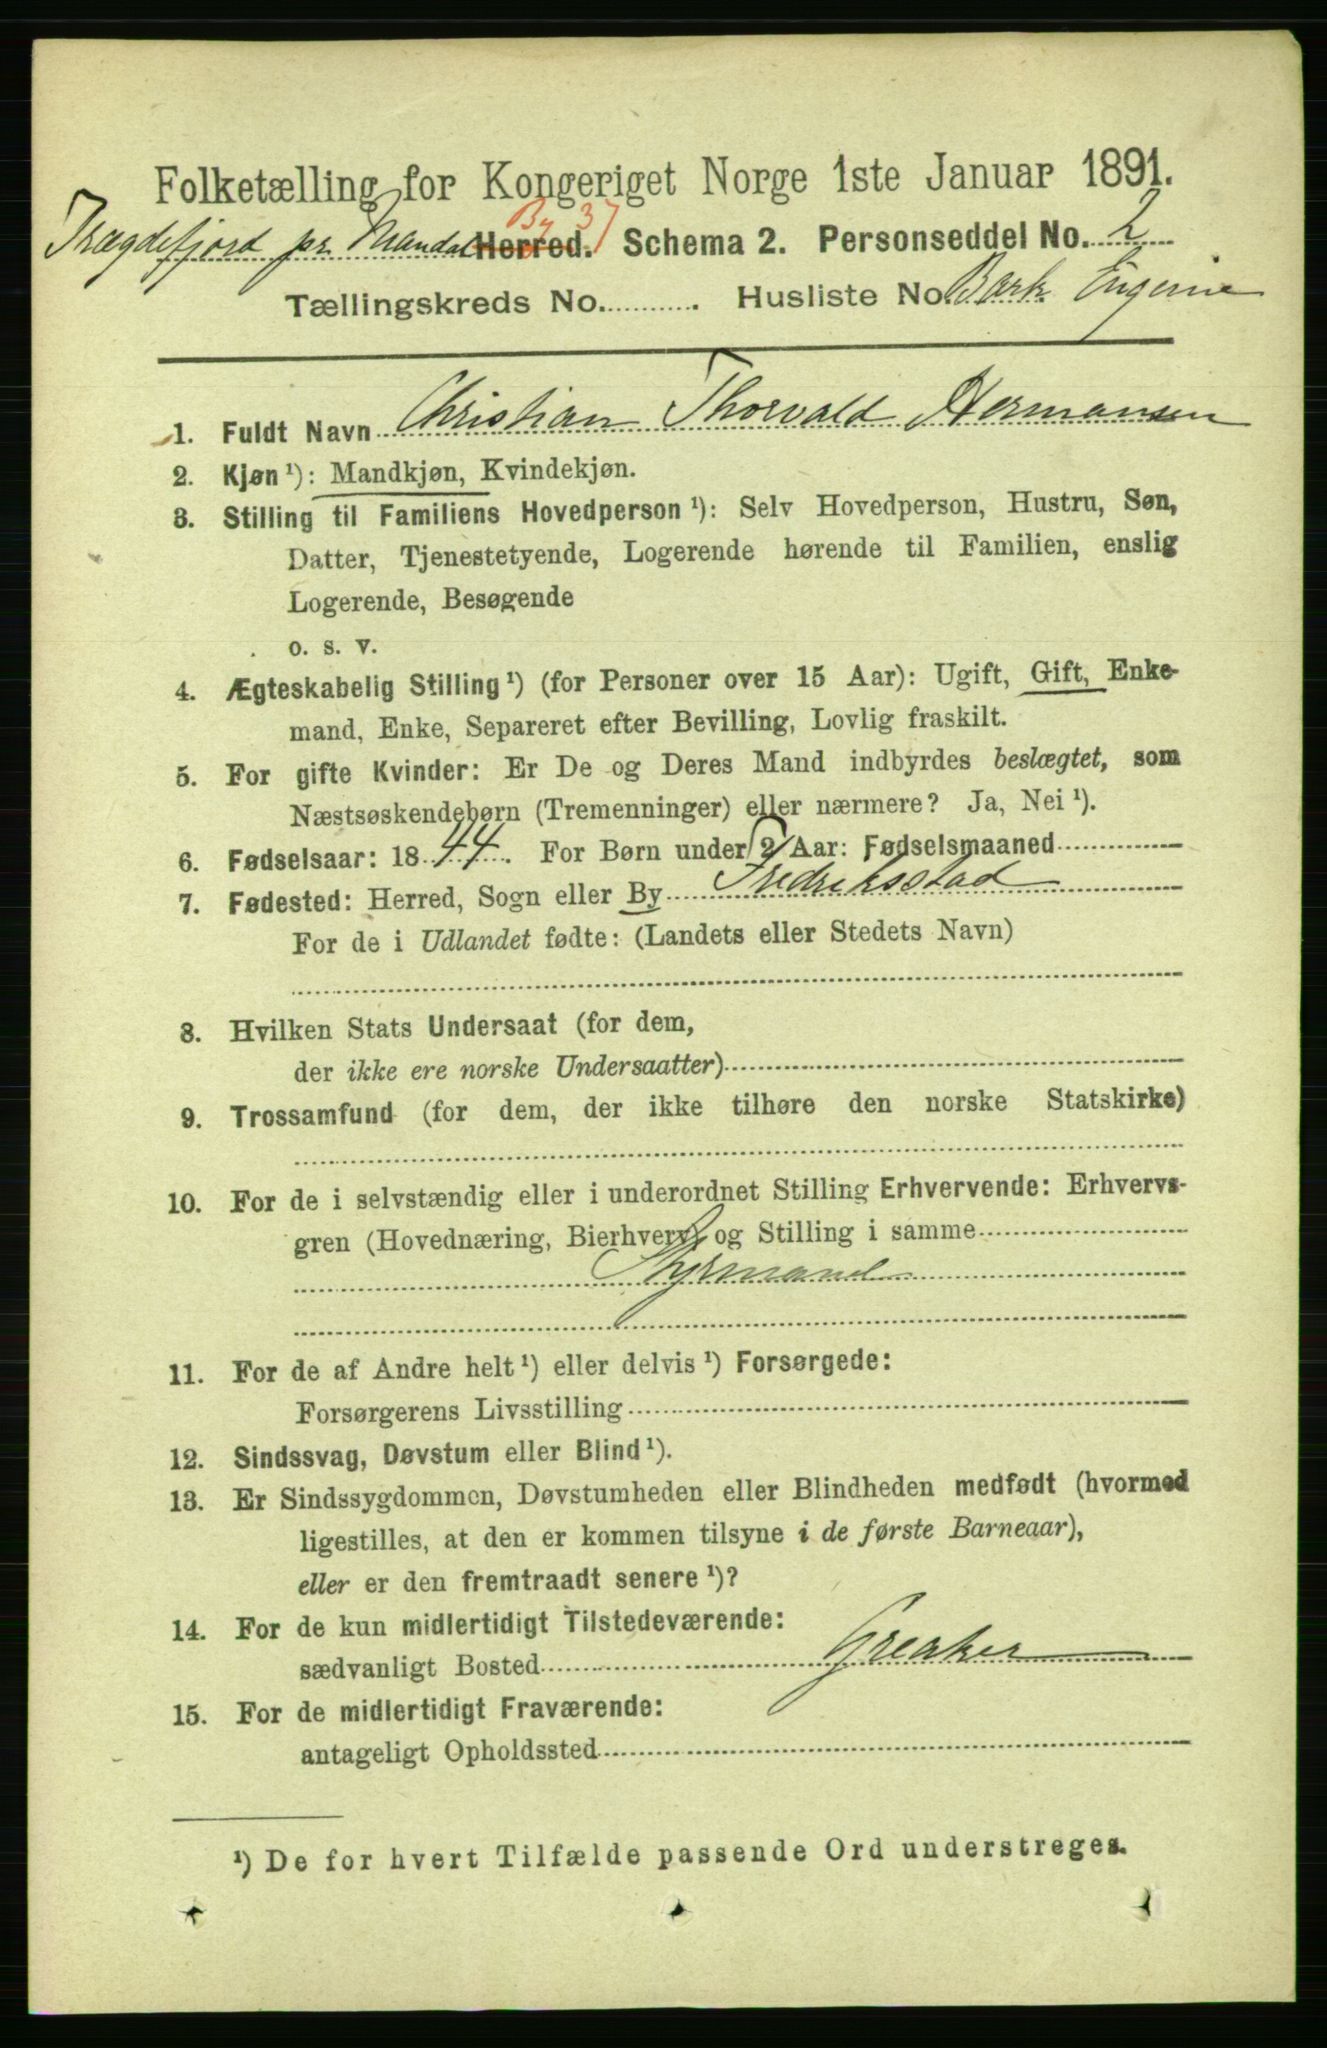 Folketælling for Kongeriget Norge 1ste Januar 1891.
By 37
Trægdefjord pr. Mandal Herred. Schema 2. Personseddel No. 2
Tællingskreds No. . Husliste No. Bark Eugenie
1. Fuldt Navn Christian Thorvald Hermansen
2. Kjøn¹): Mandkjøn, Kvindekjøn.
3. Stilling til Familiens Hovedperson¹): Selv Hovedperson, Hustru, Søn,
Datter, Tjenestetyende, Logerende hørende til Familien, enslig
Logerende, Besøgende
o. s. v.
4. Ægteskabelig Stilling¹) (for Personer over 15 Aar): Ugift, Gift, Enke-
mand, Enke, Separeret efter Bevilling, Lovlig fraskilt.
5. For gifte Kvinder: Er De og Deres Mand indbyrdes beslægtet, som
Næstsøskendebørn (Tremenninger) eller nærmere? Ja, Nei¹).
6. Fødselsaar: 1844. For Børn under 2 Aar: Fødselsmaaned
7. Fødested: Herred, Sogn eller By Fredriksstad
For de i Udlandet fødte: (Landets eller Stedets Navn)
8. Hvilken Stats Undersaat (for dem,
der ikke ere norske Undersaatter)
9. Trossamfund (for dem, der ikke tilhøre den norske Statskirke)
10. For de i selvstændig eller i underordnet Stilling Erhvervende: Erhvervs-
gren (Hovednæring, Bierhverv) og Stilling i samme
Styrmand
11. For de af Andre helt¹) eller delvis¹) Forsørgede:
Forsørgerens Livsstilling
12. Sindssvag, Døvstum eller Blind¹).
13. Er Sindssygdommen, Døvstumheden eller Blindheden medfødt (hvormed
ligestilles, at den er kommen tilsyne i de første Barneaar),
eller er den fremtraadt senere¹)?
14. For de kun midlertidigt Tilstedeværende:
sædvanligt Bosted Greaker
15. For de midlertidigt Fraværende:
antageligt Opholdssted
¹) De for hvert Tilfælde passende Ord understreges.